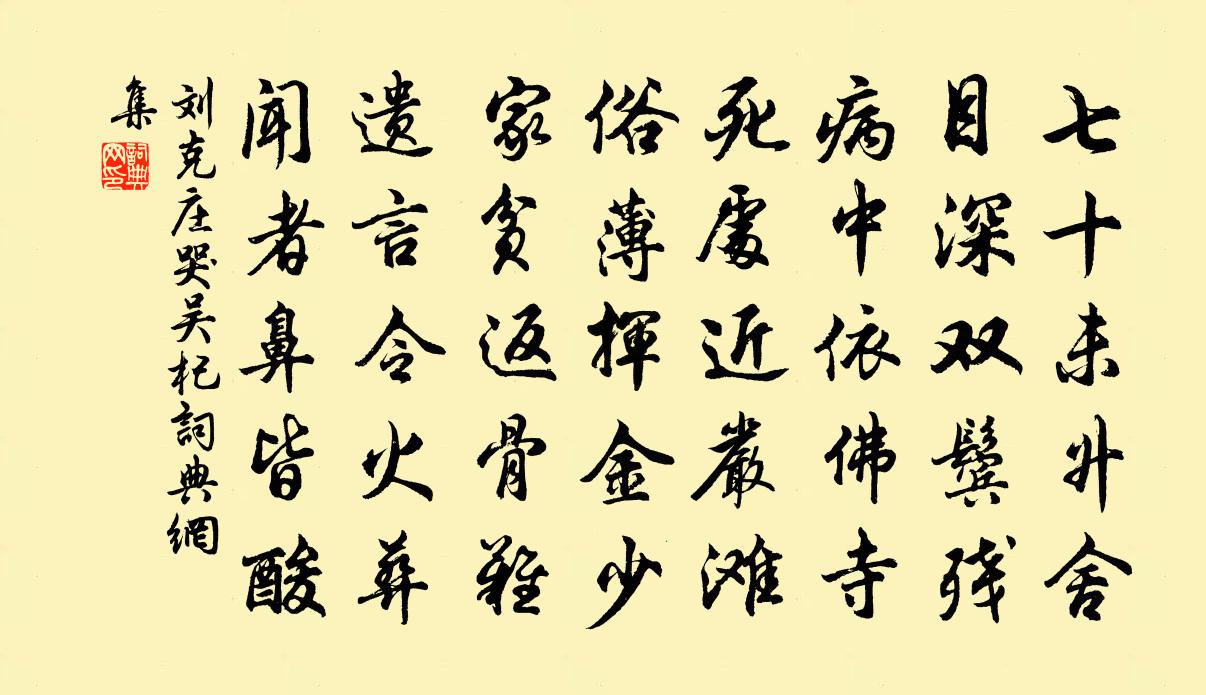 七十未升舍
目深双鬓残
病中依佛寺
死處近嚴滩
俗薄揮金少
家贫返骨難
遗言令火葬
闻者鼻皆酸
刘克庄哭吴杞詞典網
集
詞典
网印